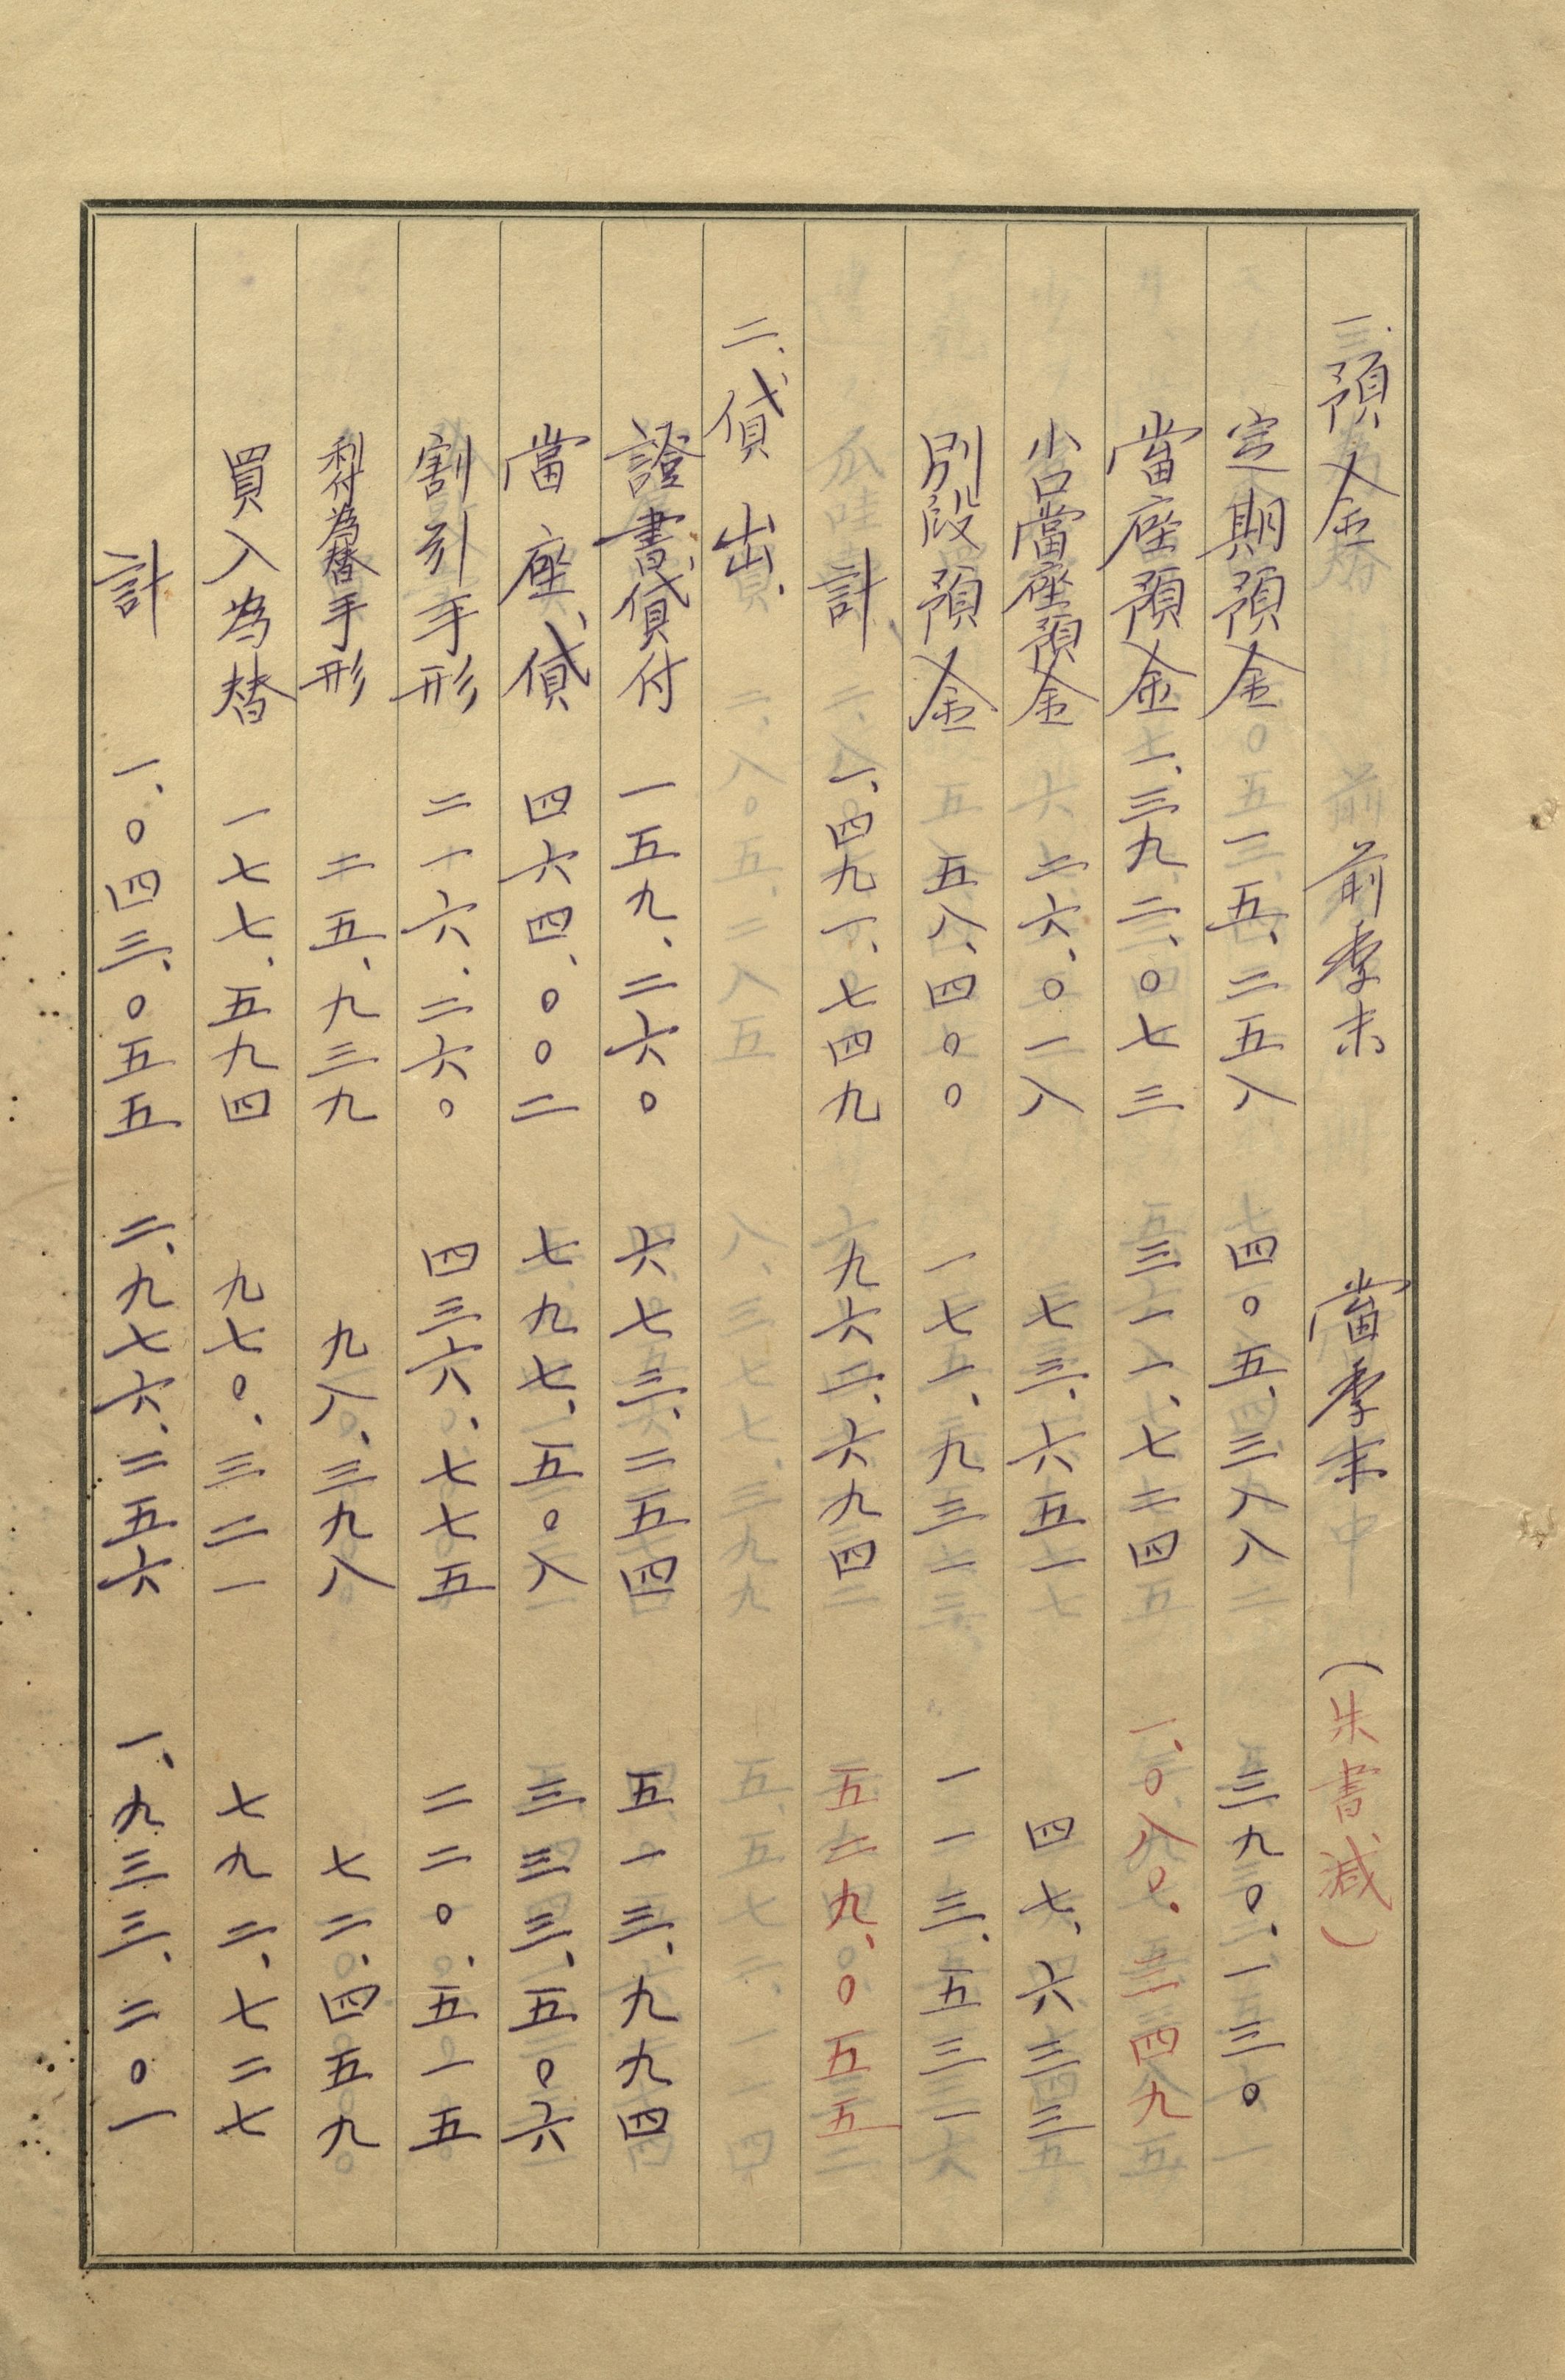 一、預金 前季末 當季末 （朱書減）
定期預金 一五、二五八 四〇五、三八八 三九〇、一三〇
當座預金 一、三九二、〇七三 三一一、七二四 一、〇八〇、三四九
小口當座預金 二六、〇一八 七三、六五一 四七、六三三
別段預金 五八、四〇〇 一七一、九三一 一一三、五三一
計 一、四九一、七四九 九六二、六九四 五二九、〇五五
二、貸出
證書貸付 一五九、二六〇 六七三、二五四 五一三、九九四
當座貸 四六四、〇〇二 七九七、五〇八 三三三、五〇六
割引手形 二一六、二六〇 四三六、七七五 二二〇、五一五
利付為替手形 二五、九三九 九八、三九八 七二、四五九
買入為替 一七七、五九四 九七〇、三二一 七九二、七二七
計 一、〇四三、〇五五 二、九七六、二五六 一、九三三、二〇一